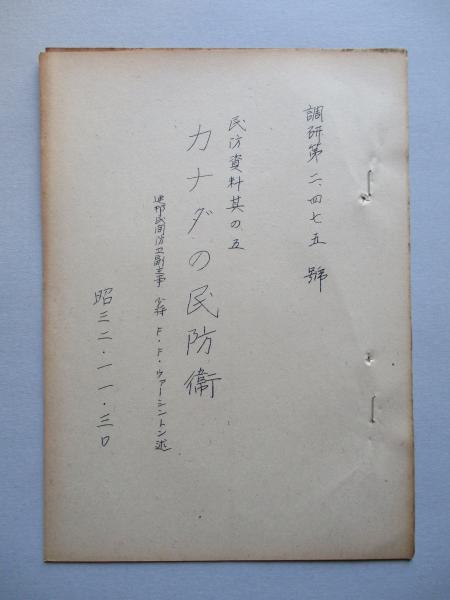 調研第二、四七五號
民防資料其の五
カナダの民防衛
連邦民間防卫副主事 少将 F・F・ウァーシントン述
昭三二・一一・三〇